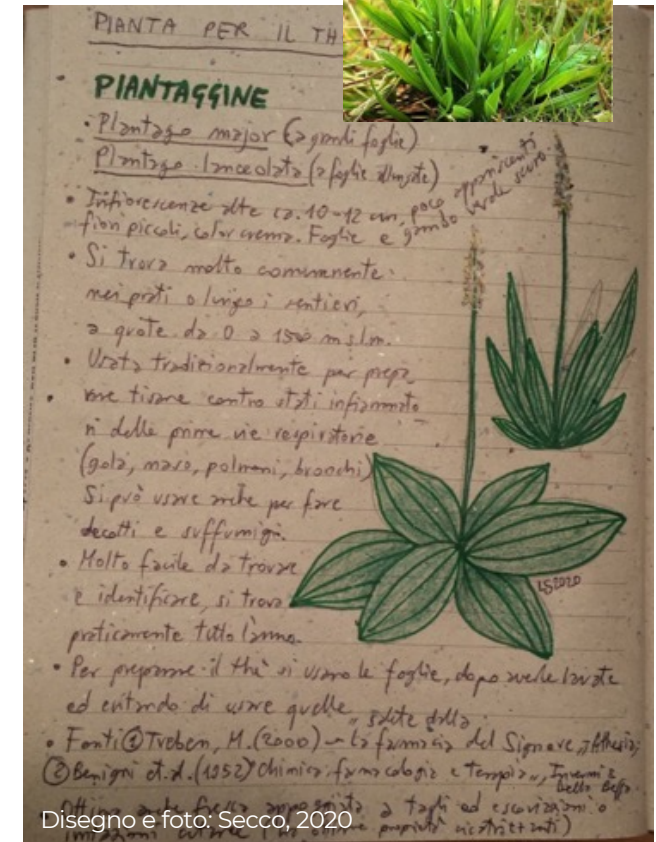 PIANTA PER IL TH
PIANTAGGINE
• Plantago major (a grandi foglie)
Plantago lanceolata (a foglie allungate)
• Infiorescenze alte ca. 10-12 cm, poco appariscenti
fiori piccoli, color crema. Foglie e gambo verde scuro.
• Si trova molto comunemente
nei prati o lungo i sentieri,
a quote da 0 a 1500 m s.l.m.
• Usata tradizionalmente per prepa
rare tisane contro stati infiammato
ri delle prime vie respiratorie
(gola, naso, polmoni, bronchi)
Si può usare anche per fare
decotti e suffumigi.
• Molto facile da trovare
e identificare, si trova
praticamente tutto l'anno.
LS2020
• Per preparare il thè si usano le foglie, dopo averle lavate
ed evitando di usare quelle
• Fonti ① Treben, M. (2000) - La farmacia del Signore,
② Benigni et al. (1952) Chimica, farmacologia e terapia", Inverni &
Della Beffa.
• Ottima anche fresca appoggiata a tagli ed escoriazioni o
proprietà cicatrizzanti)
Disegno e foto: Secco, 2020